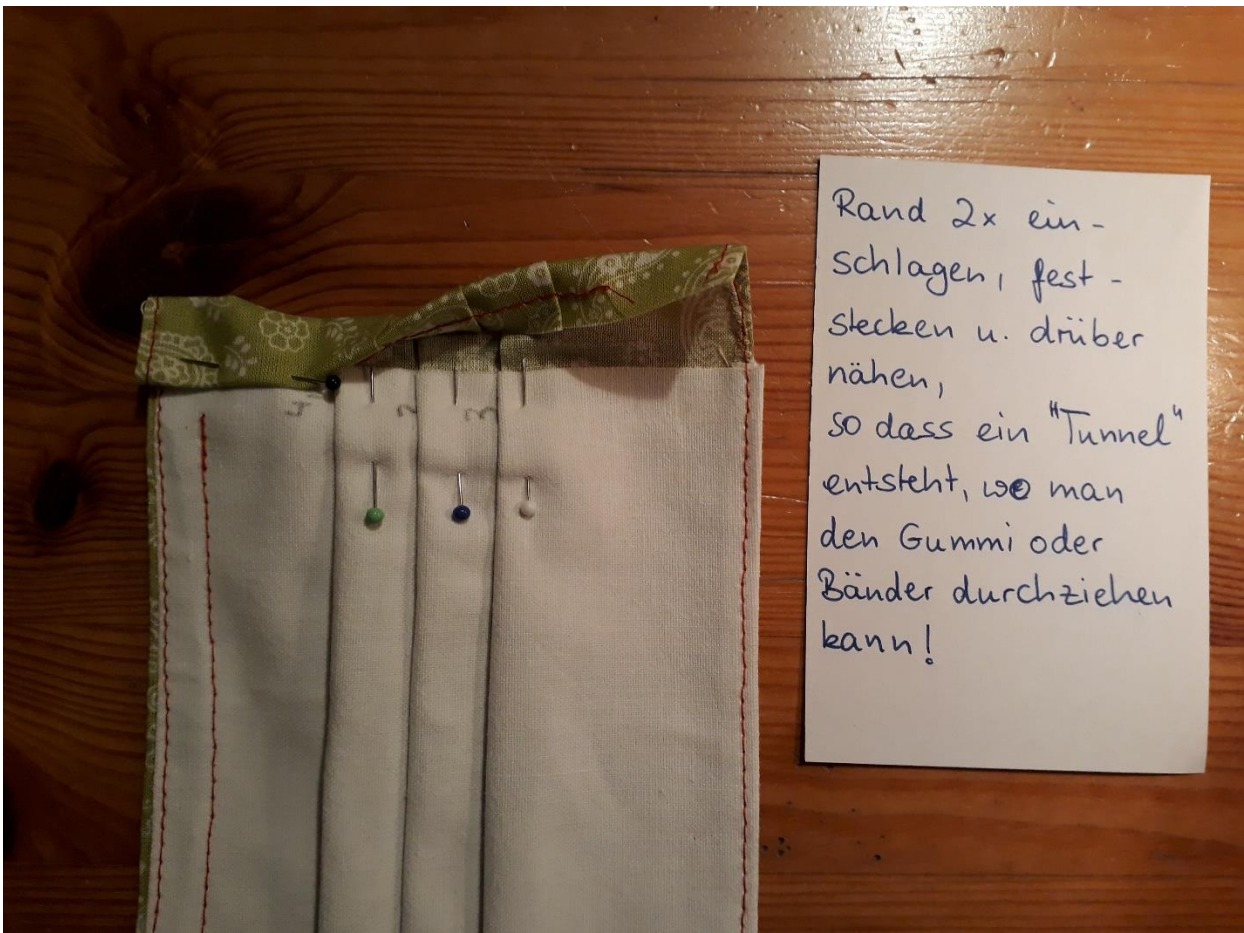 Rand 2x ein-
schlagen, fest-
stecken u. drüber
nähen,
so dass ein "Tunnel"
entsteht, wo man
den Gummi oder
Bänder durchziehen
kann!
1 2 3